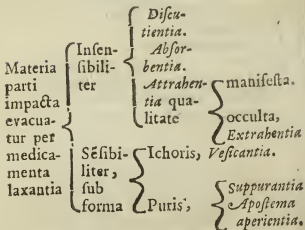 Materia
parti
impacta
evacua-
tur per
medica-
menta
laxantia
Inſen-
ſibili-
ter
Diſcu-
tientia.
Abſor-
bentia.
Attrahen-
tia qua-
litate
manifeſta.
occulta,
Extrahentia
Sẽſibi-
liter,
ſub
forma
Ichoris, Veſicantia.
Puris,
Suppurantia
Apoſtema
aperientia.